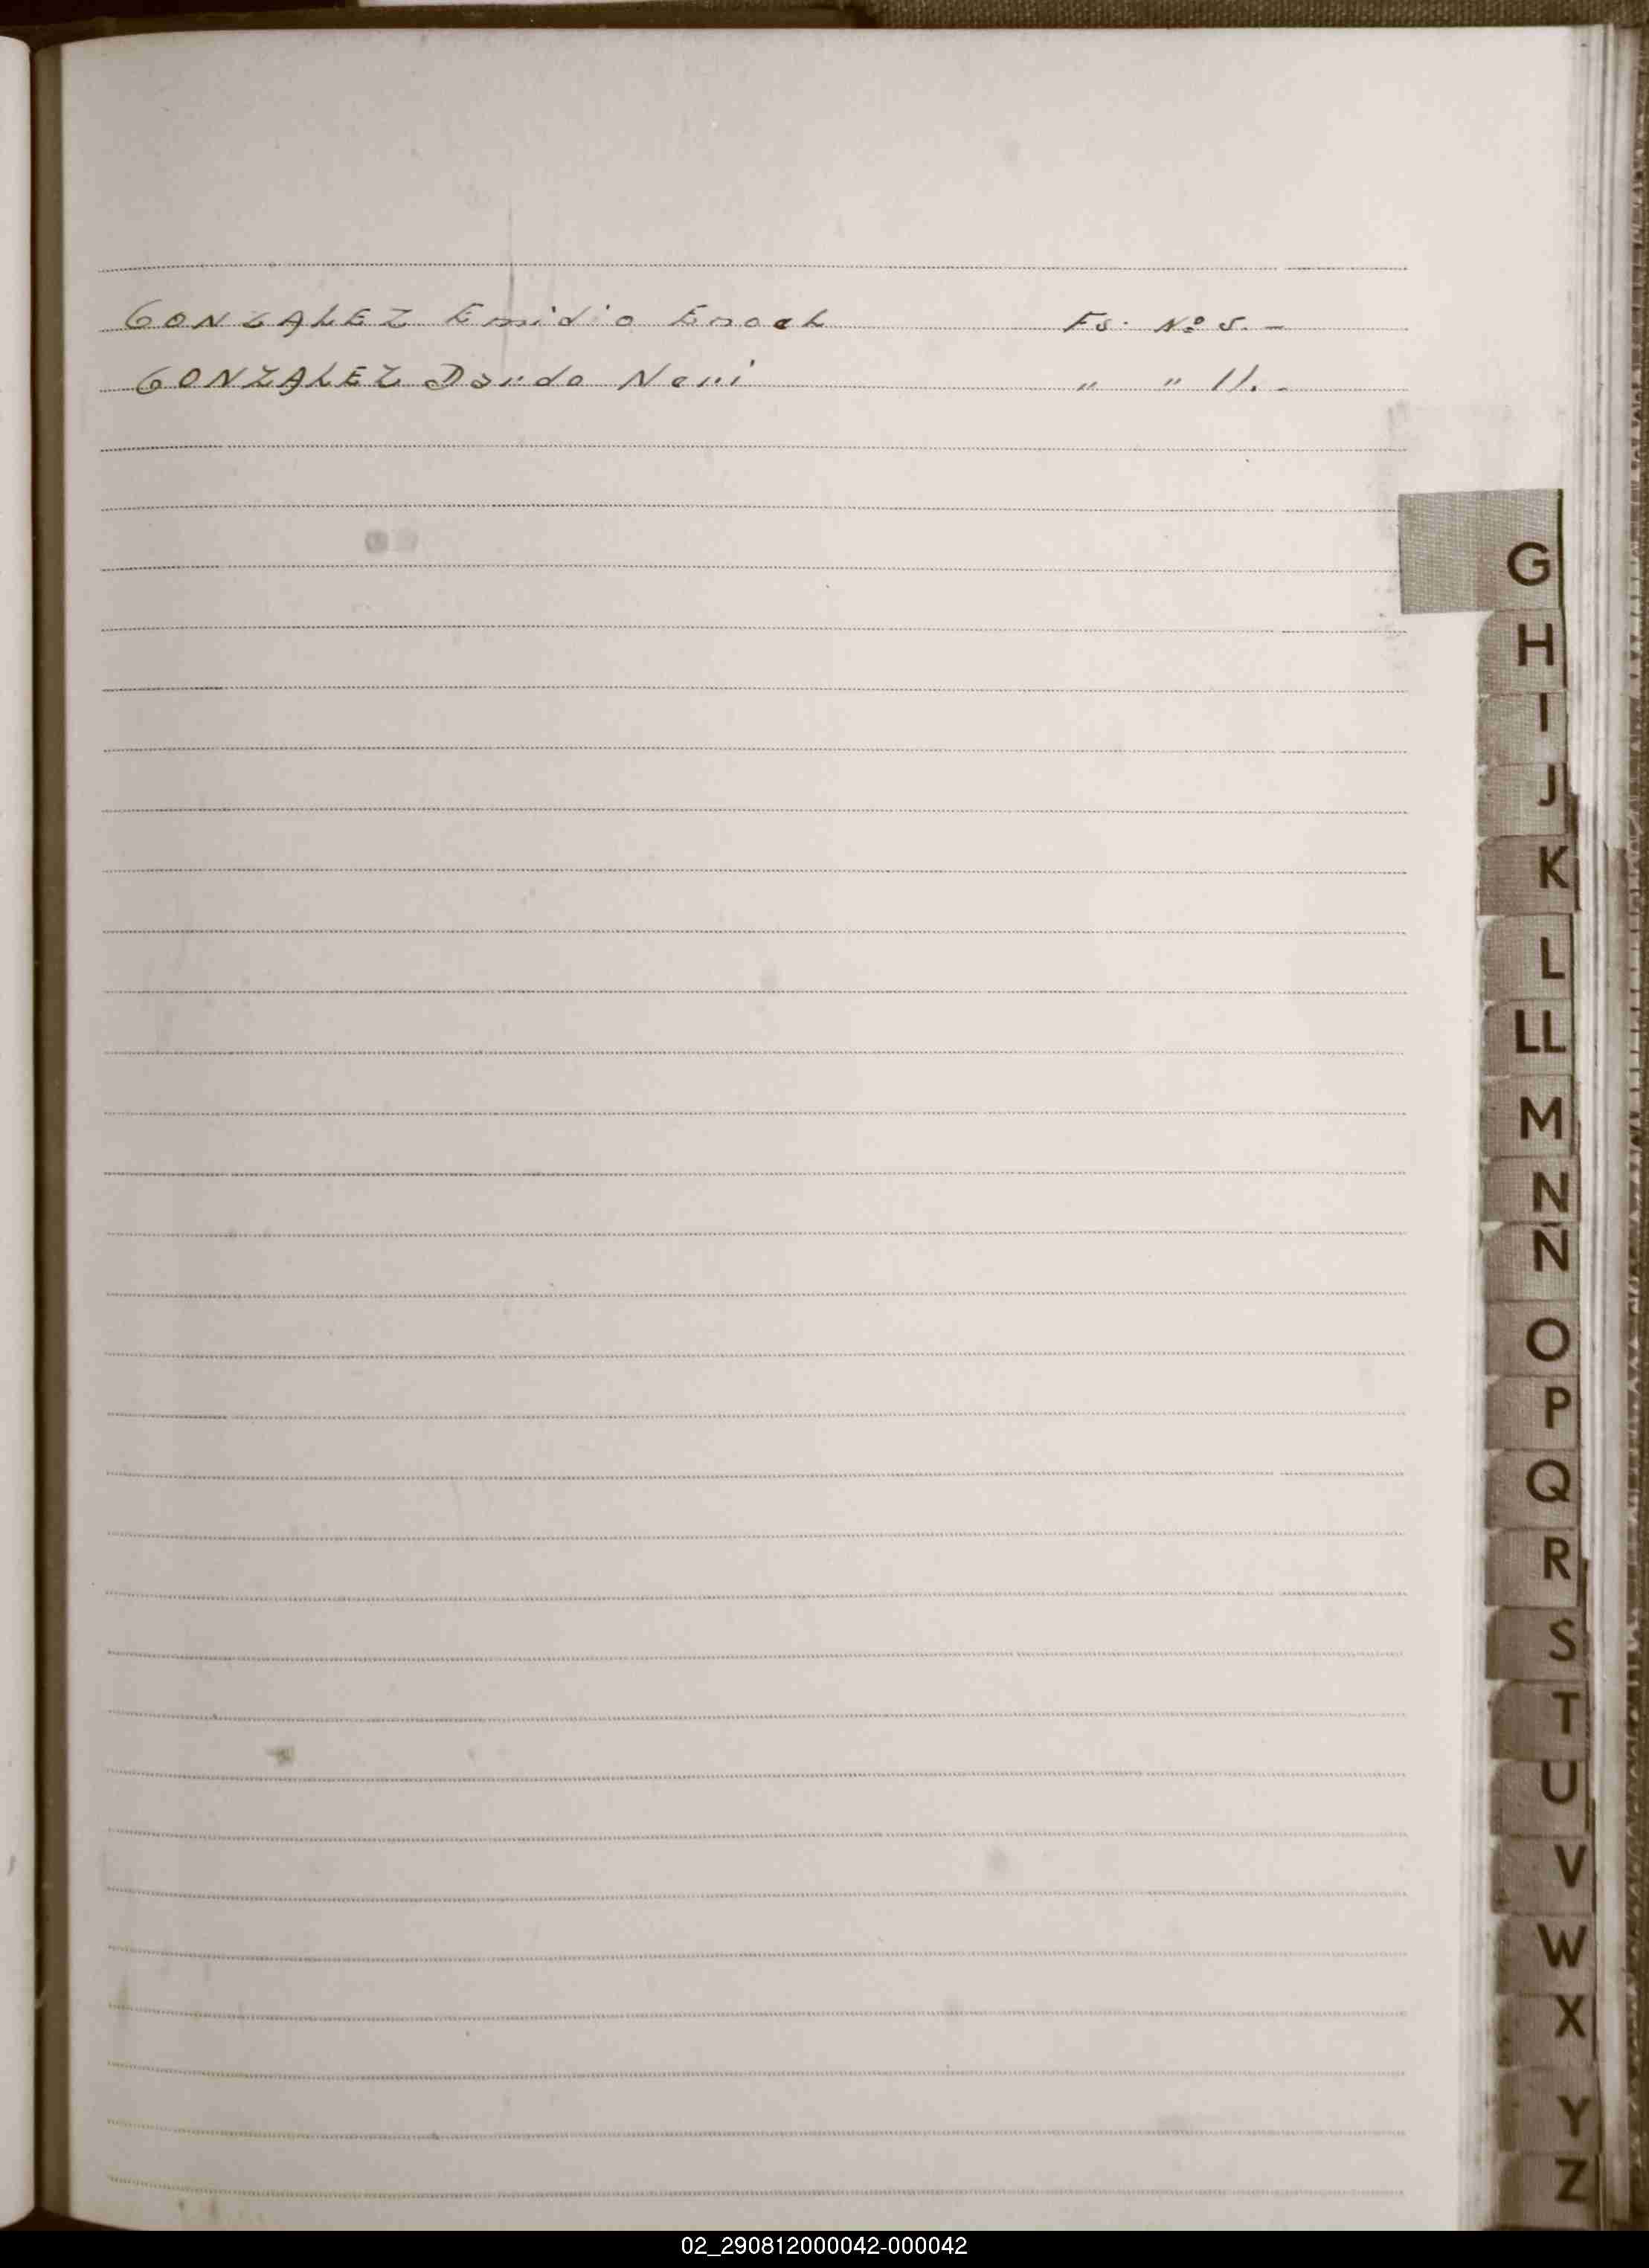 GONZALEZ Emidio Enoch Fs. Nº 5.-
GONZALEZ Neni " " 11.-
G
H
I
J
K
L
LL
M
N
Ñ
O
P
Q
R
S
T
U
V
W
X
Y
Z
02_290812000042-000042